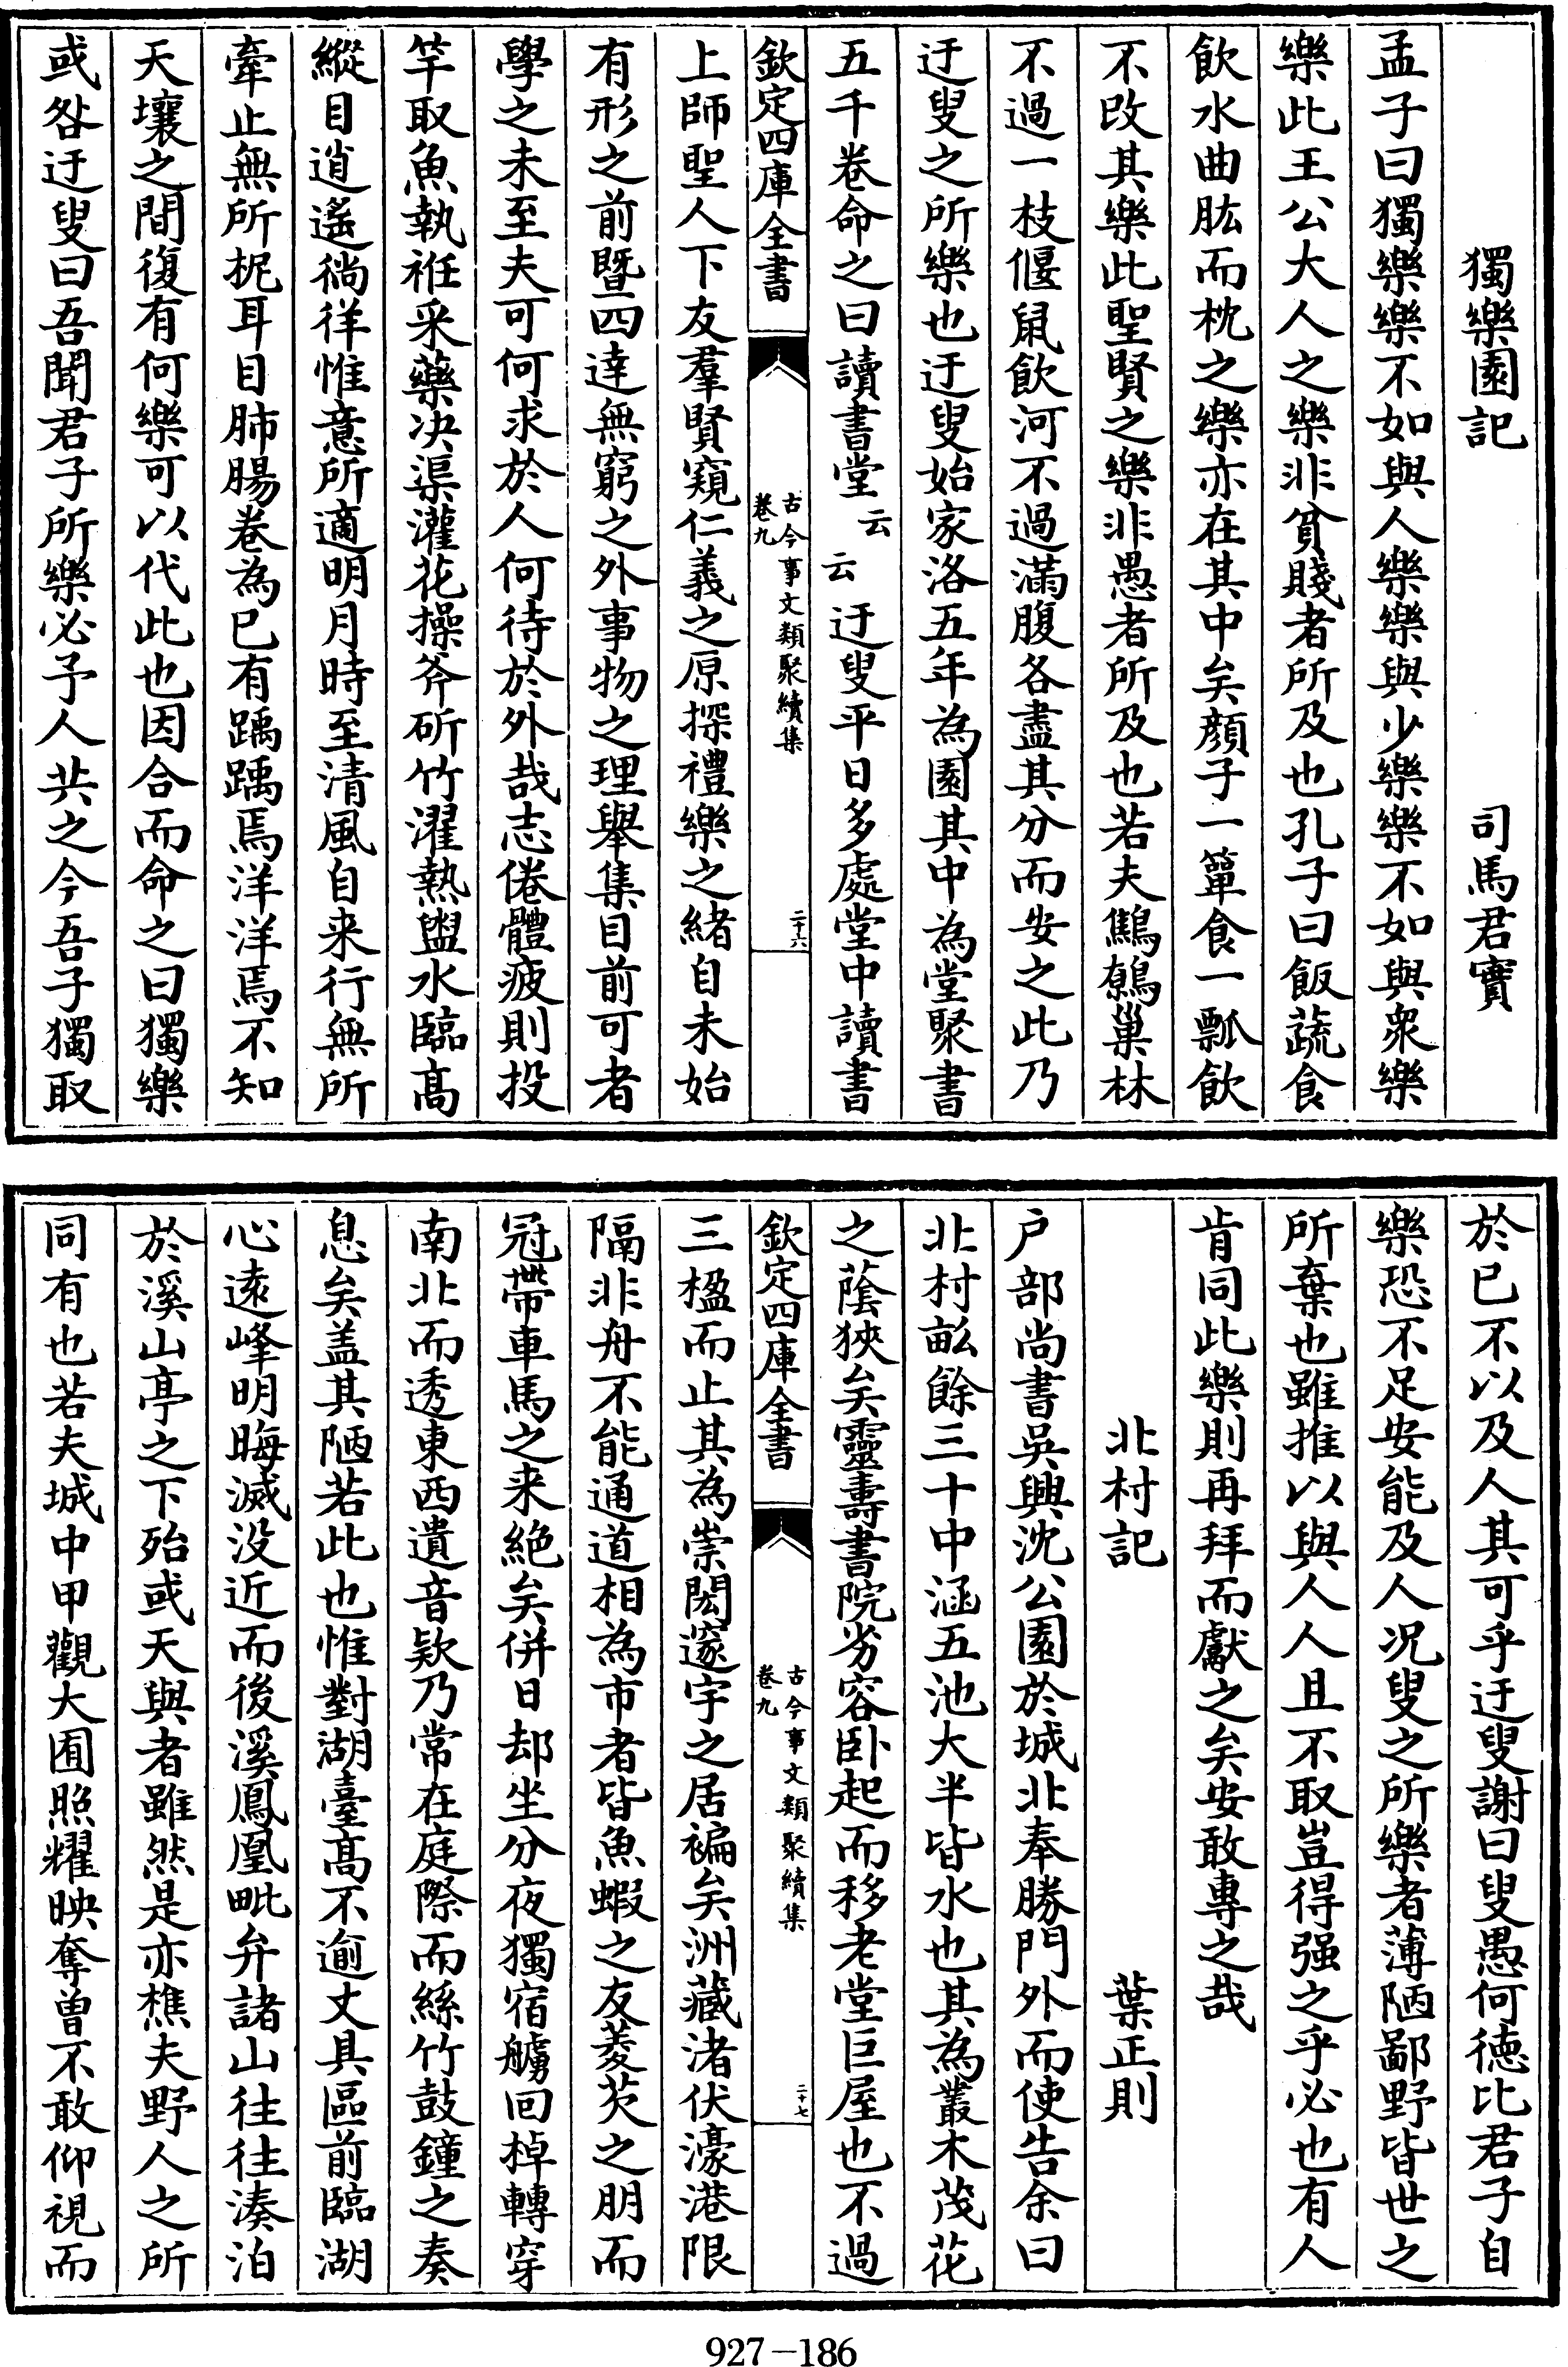 獨樂園記 司馬君實
孟子曰獨樂樂不如與人樂樂與少樂樂不如與衆樂
樂此王公大人之樂非貧賤者所及也孔子曰飯蔬食
飲水曲肱而枕之樂亦在其中矣顔子一簞食一瓢飲
不改其樂此聖賢之樂非愚者所及也若夫鷦鷯巢林
不過一枝偃鼠飲河不過滿腹各盡其分而安之此乃
迂叟之所樂也迂叟始家洛五年為園其中為堂聚書
五千卷命之曰讀書堂云云迂叟平日多處堂中讀書
欽定四庫全書
古今事文類聚續集
卷九
二十六
上師聖人下友羣賢窺仁義之原探禮樂之緒自未始
有形之前暨四達無窮之外事物之理舉集目前可者
學之未至夫可何求於人何待於外哉志倦體疲則投
竿取魚執袵采藥决渠灌花操斧斫竹濯熱盥水臨髙
縱目逍遙徜徉惟意所適明月時至清風自来行無所
牽止無所柅耳目肺腸卷為已有踽踽焉洋洋焉不知
天壤之間復有何樂可以代此也因合而命之曰獨樂
或咎迂叟曰吾聞君子所樂必予人共之今吾子獨取
於已不以及人其可乎迂叟謝曰叟愚何德比君子自
樂恐不足安能及人况叟之所樂者薄陋鄙野皆世之
所棄也雖推以與人人且不取豈得强之乎必也有人
肯同此樂則再拜而獻之矣安敢專之哉
北村記 葉正則
户部尚書吳興沈公園於城北奉勝門外而使告余曰
北村畝餘三十中涵五池大半皆水也其為叢木茂花
之蔭狹矣靈壽書院劣容卧起而移老堂巨屋也不過
欽定四庫全書
古今事文類聚續集
卷九
二十七
三楹而止其為崇閎邃宇之居褊矣洲藏渚伏濠港限
隔非舟不能通道相為市者皆魚蝦之友菱芡之朋而
冠帶車馬之来絶矣併日却坐分夜獨宿艣回棹轉穿
南北而透東西遺音欵乃常在庭際而絲竹鼓鐘之奏
息矣盖其陋若此也惟對湖臺髙不逾丈具區前臨湖
心逺峰明晦滅没近而後溪鳳凰毗弁諸山往往湊泊
於溪山亭之下殆或天與者雖然是亦樵夫野人之所
同有也若夫城中甲觀大囿照耀映奪曾不敢仰視而
927-186